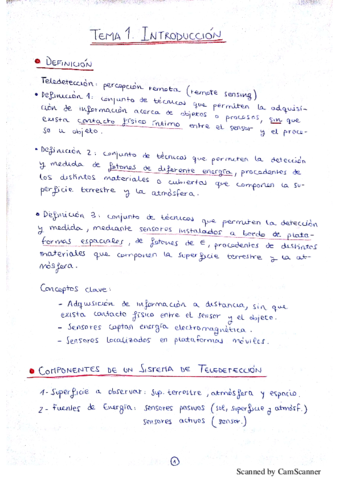 TEMA 1. INTRODUCCIÓN
• DEFINICIÓN
Teledetección: percepción remota (remote sensing)
• Definición 1: conjunto de técnicas que permiten la adquisi-
ción de información acerca de objetos o procesos, sin que
exista contacto físico íntimo entre el sensor y el proce-
so u objeto.
• Definición 2: conjunto de técnicas que permiten la detección
y medida de fotones de diferente energía, procedentes de
los distintos materiales o cubiertas que componen la su-
perficie terrestre y la atmósfera.
• Definición 3: conjunto de técnicas que permiten la detección
y medida, mediante sensores instalados a bordo de plata-
formas espaciales, de fotones de E, procedentes de distintos
materiales que componen la superficie terrestre y la at-
mósfera.
Conceptos clave:
- Adquisición de información a distancia, sin que
exista contacto físico entre el sensor y el objeto.
- Sensores captan energía electromagnética.
- Sensores localizados en plataformas móviles.
• COMPONENTES DE UN SISTEMA DE TELEDETECCIÓN
1- Superficie a observar: sup. terrestre, atmósfera y espacio.
2- Fuentes de Energía: sensores pasivos (sol, superficie y atmósf.)
sensores activos (sensor)
1
Scanned by CamScanner